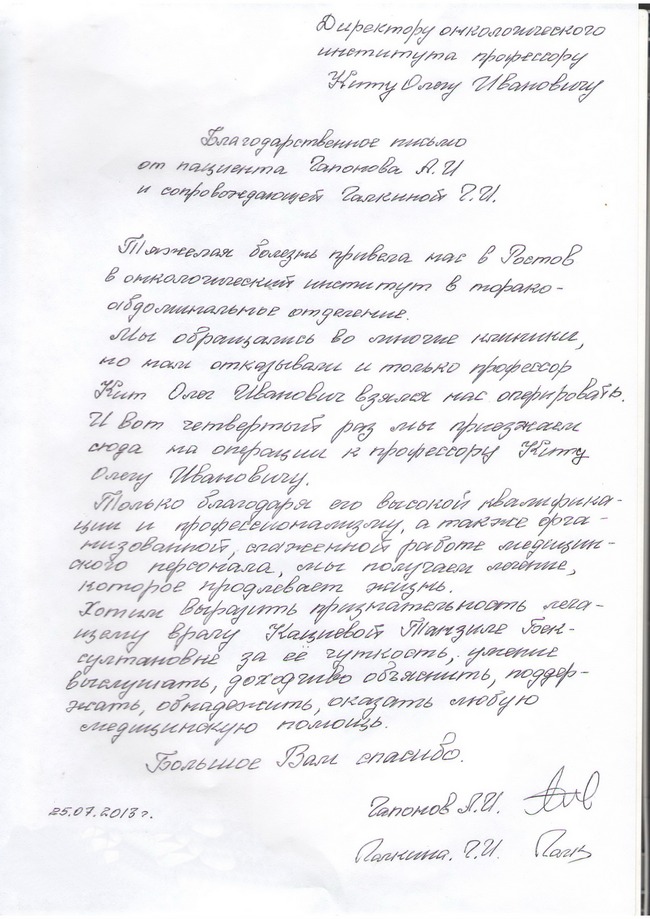 Директору онкологического
института профессору
Киту Олегу Ивановичу
Благодарственное письмо
от пациента Чапонова А.И
и сопровождающей Галкиной Г.И.
Тяжелая болезнь привела нас в Ростов
в онкологический институт в торако-
абдоминальное отделение.
Мы обращались во многие клиники,
но нам отказывали и только профессор
Кит Олег Иванович взялся нас оперировать.
И вот четвертый раз мы приезжаем
сюда на операции к профессору Киту
Олегу Ивановичу.
Только благодаря его высокой квалифика-
ции и профессионализму, а также орга-
низованной, слаженной работе медицин-
ского персонала, мы получаем лечение,
которое продлевает жизнь.
Хотим выразить признательность леча-
щему врачу Кациевой Танзиле Бек-
султановне за её чуткость, умение
выслушать, доходчиво объяснить, поддер-
жать, обнадежить, оказать любую
медицинскую помощь.
Большое Вам спасибо.
25.07.2013 г.
Чапонов А.И.
Галкина. Г.И.